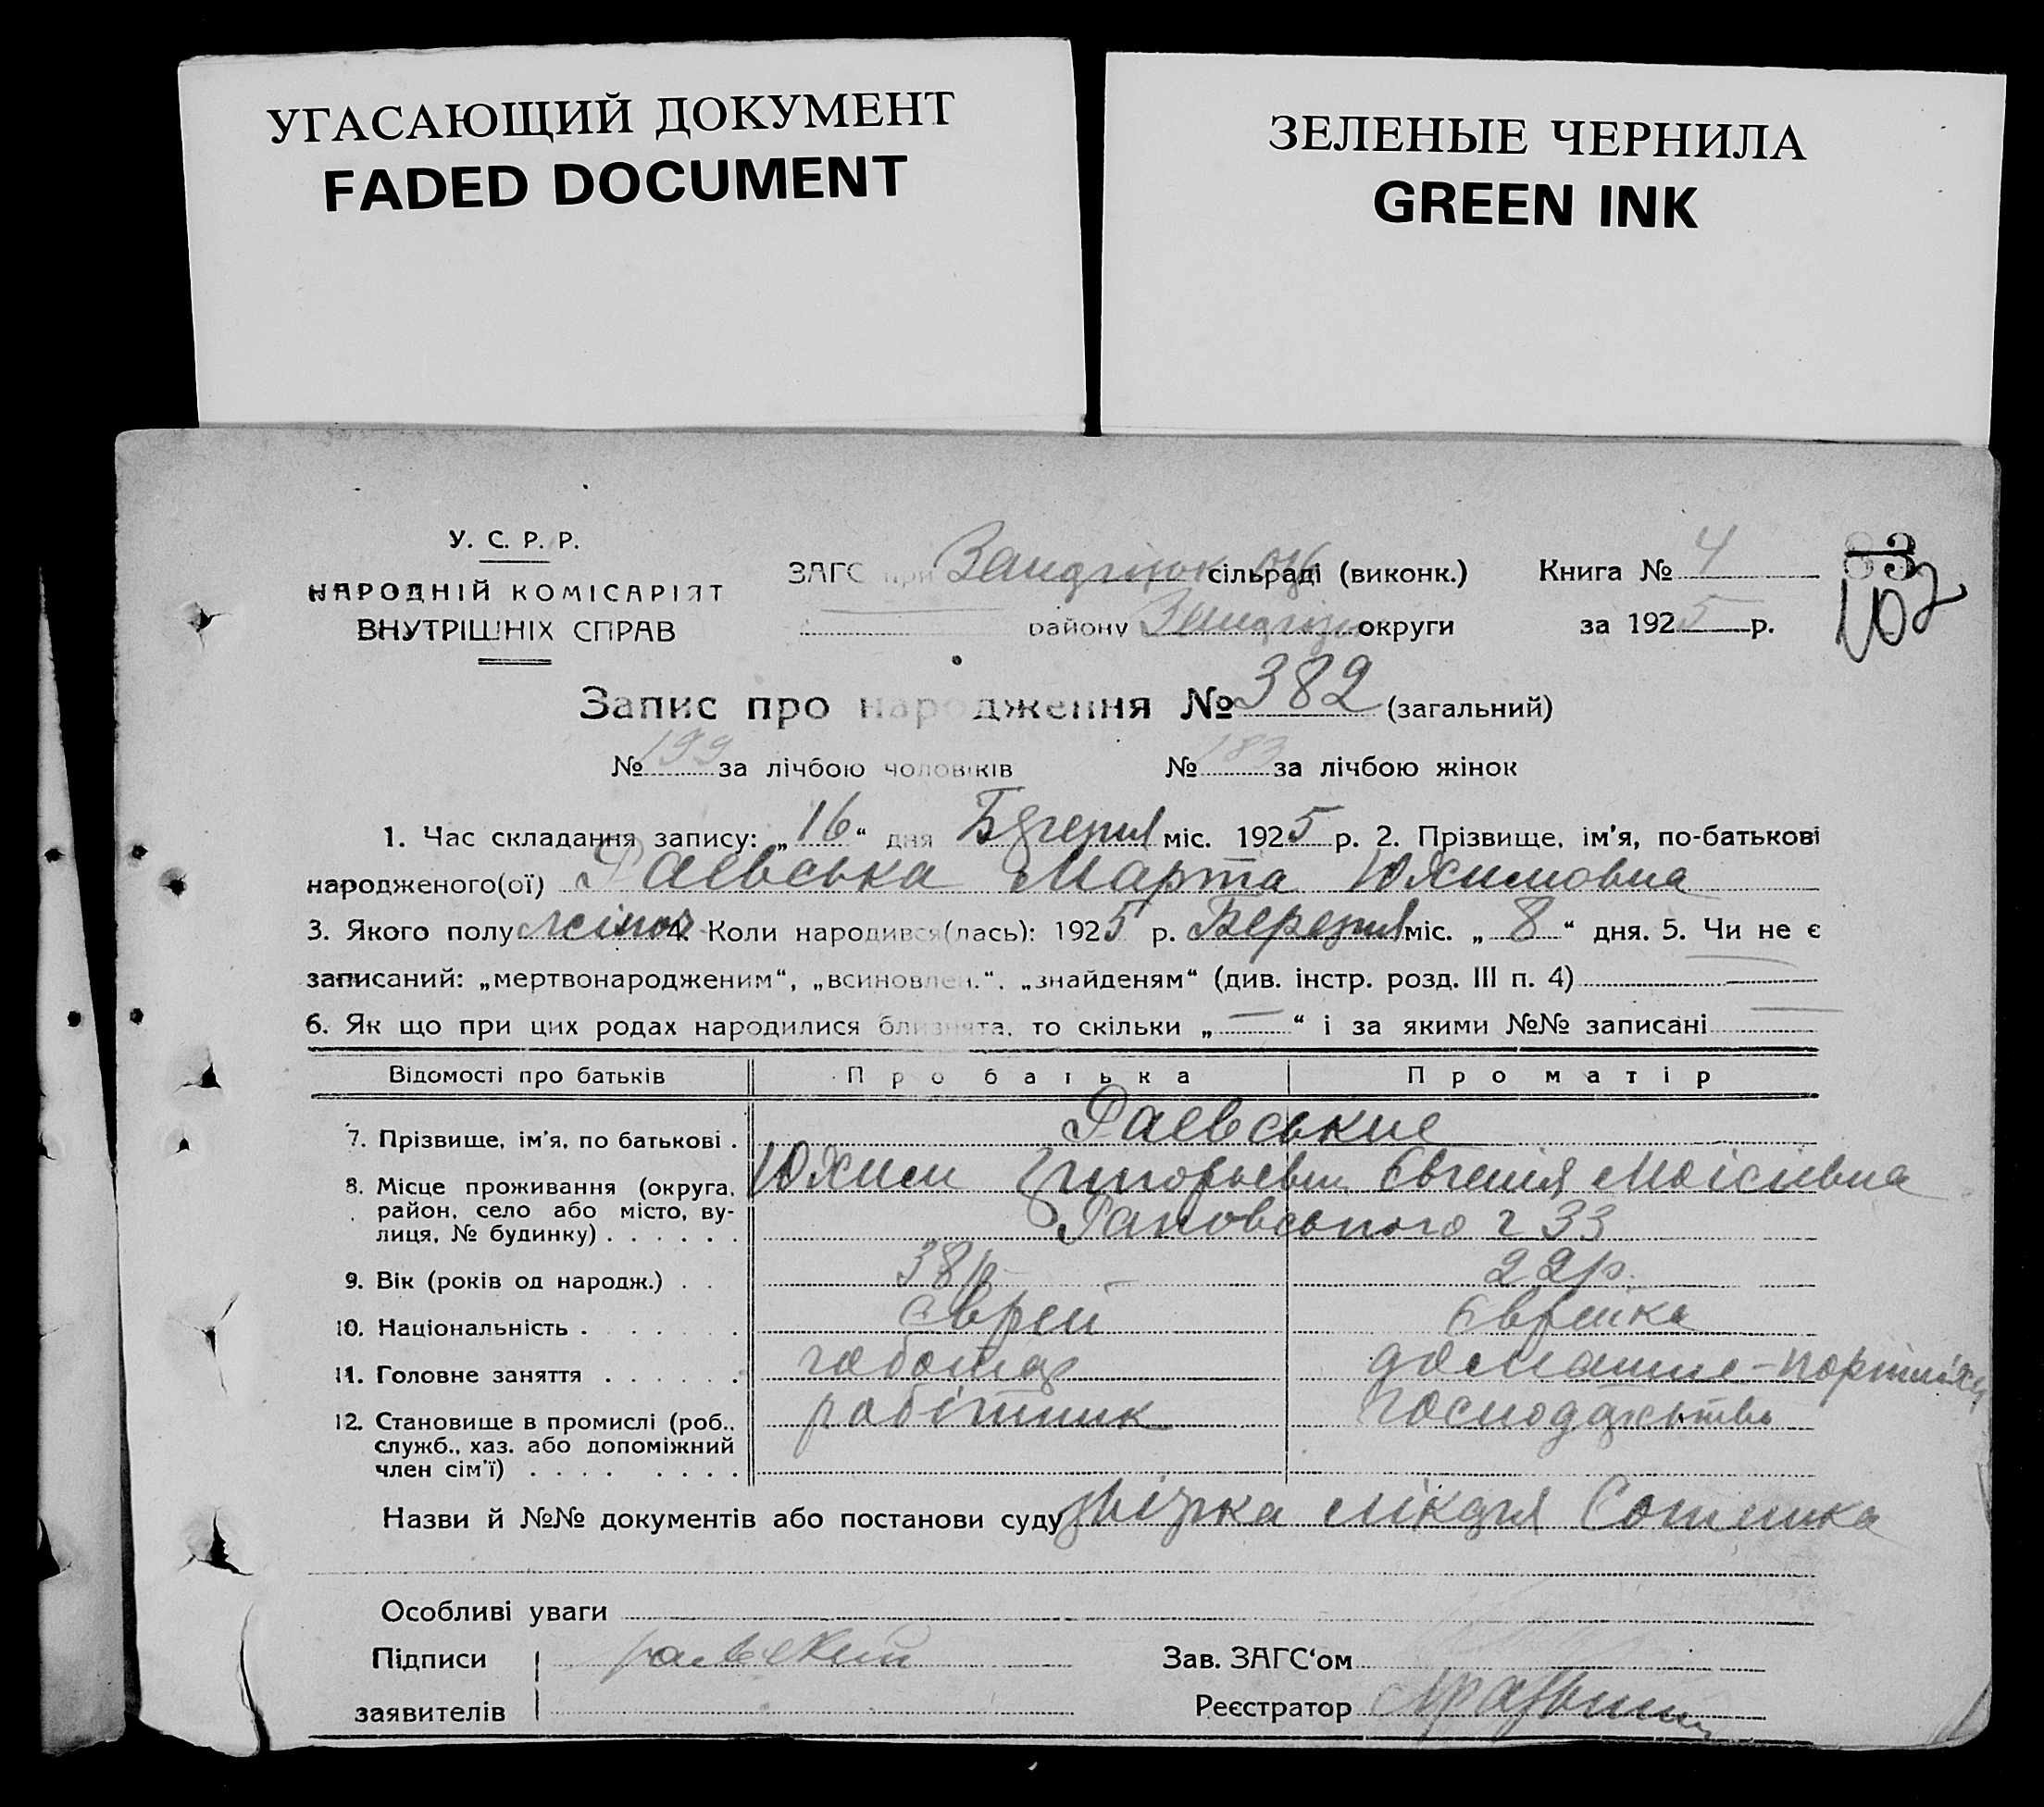 УГАСАЮЩИЙ ДОКУМЕНТ
FADED DOCUMENT
ЗЕЛЕНЫЕ ЧЕРНИЛА
GREEN INK
У. С. Р. Р.
НАРОДНІЙ КОМІСАРІЯТ
ВНУТРІШНІХ СПРАВ
ЗАГС при сільраді (виконк.)
району округи
Книга № 4
за 1925 р.
83
102
Запис про народження № 382 (загальний)
№ 199 за лічбою чоловіків № 183 за лічбою жінок
1. Час складання запису: „16“ дня міс. 1925 р. 2. Прізвище, ім'я, по-батькові
народженого(ої) Раевська Марта Юхимовна
3. Якого полу жіноч. 4. Коли народився(лась): 1925 р. Березня міс. „8“ дня. 5. Чи не є
записаний: „мертвонародженим“, „всиновлен.“, „знайденям“ (див. інстр. розд. III п. 4)
6. Як що при цих родах народилися близнята, то скільки „—“ і за якими №№ записані —
Відомості про батьків Про батька Про матір
7. Прізвище, ім'я, по батькові . Раевськие
Юхим Григорьевич Євгенія Моісіївна
8. Місце проживання (округа, район, село або місто, вулиця, № будинку) . . . . . . 33
9. Вік (років од народж.) . . 38 р. 22 р.
10. Національність . . . . . . Єврей Єврейка
11. Головне заняття . . . . . . домашне -
12. Становище в промислі (роб., робітник господарство
служб., хаз. або допоміжний
член сім'ї) . . . . . . . .
Назви й №№ документів або постанови суду лікаря
Особливі уваги
Підписи раевский Зав. ЗАГС'ом
заявителів Реєстратор